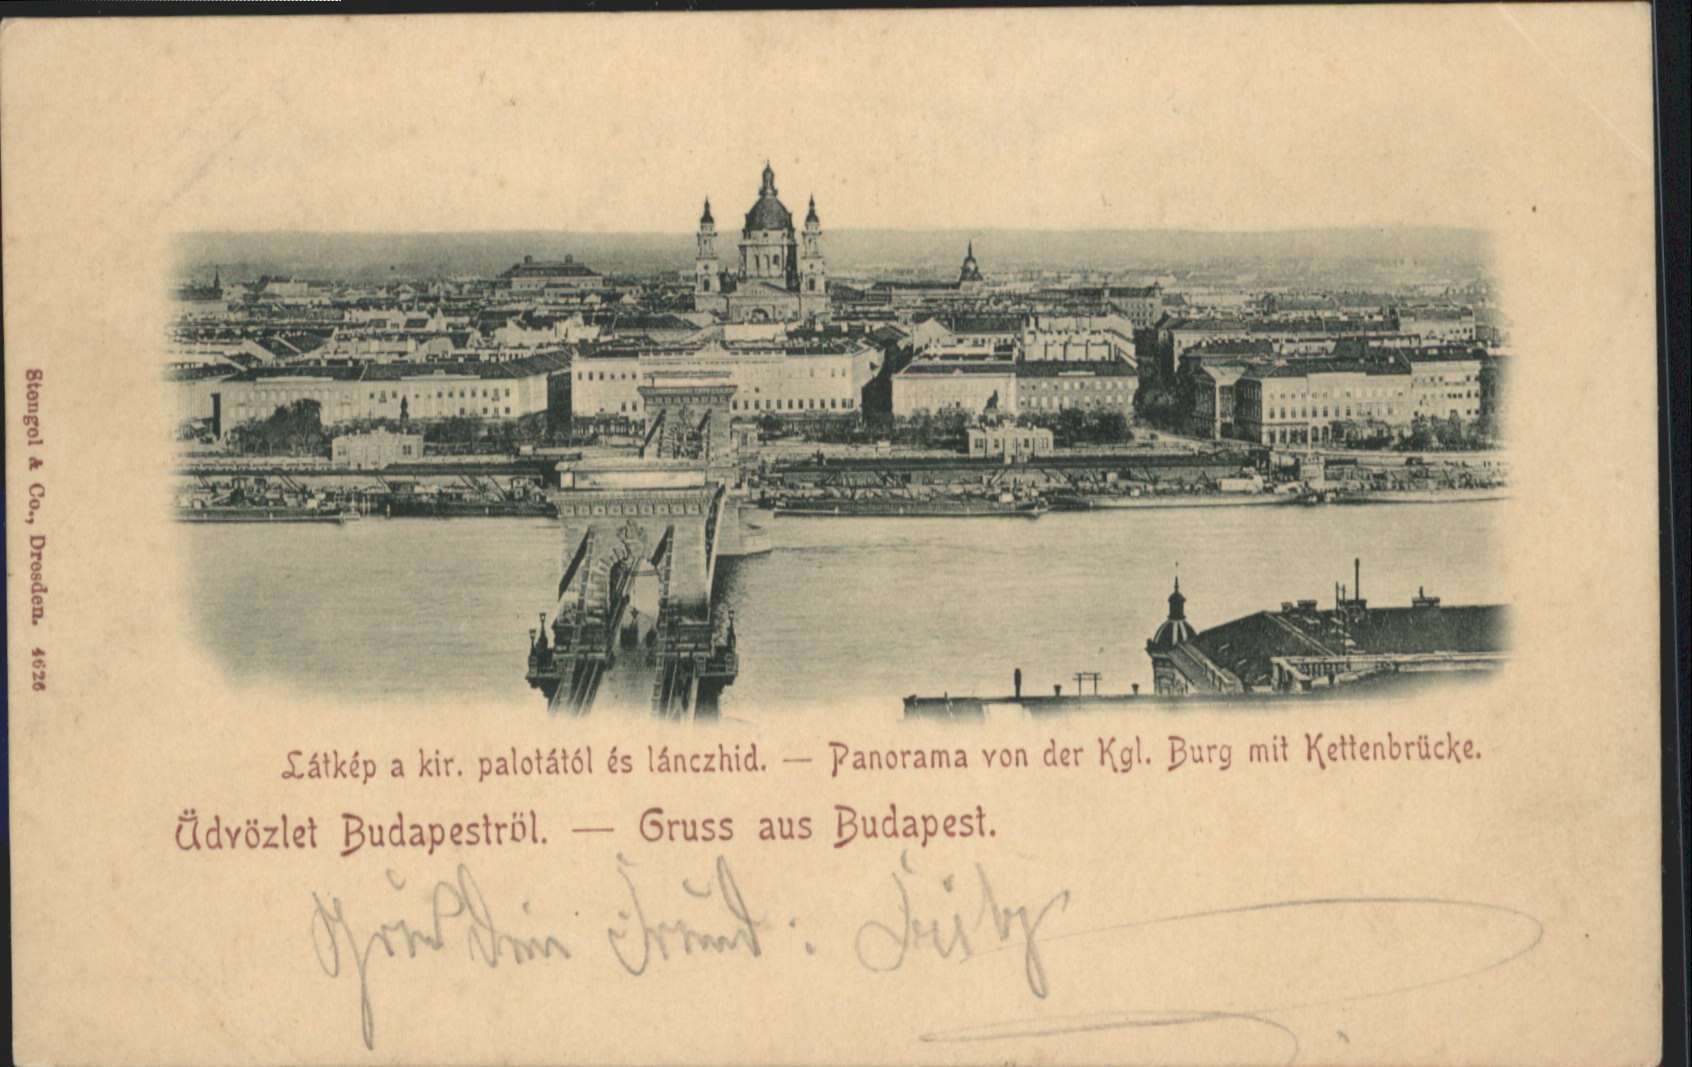 Látkép a kir. palotától és lánczhid. — Panorama von der Kgl. Burg mit Kettenbrücke.
Üdvözlet Budapestről. — Gruss aus Budapest.
Dein Freund:
Stengel & Co., Dresden. 4626